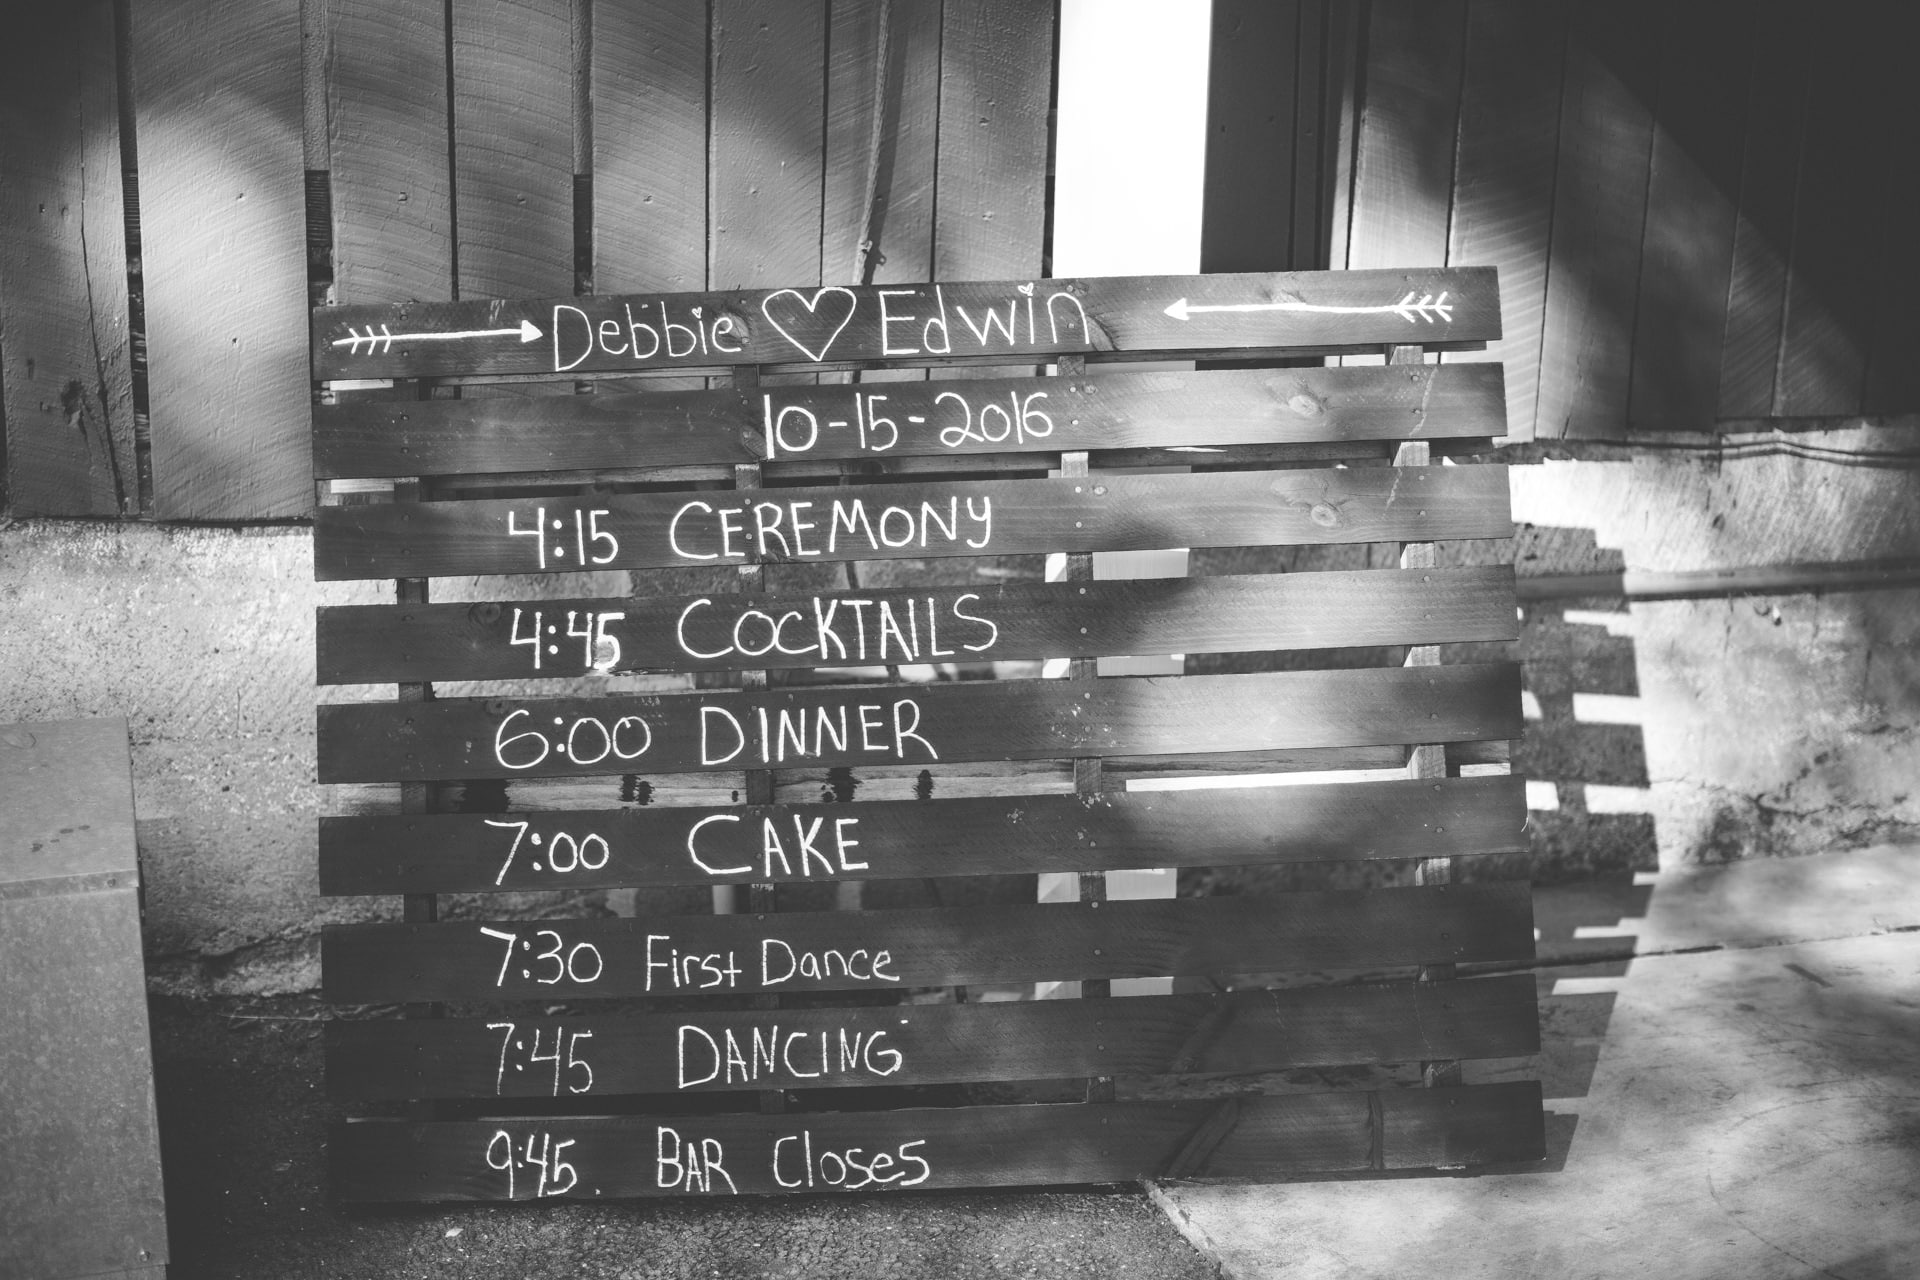 Debbie ♡ Edwin
10-15-2016
4:15 CEREMONY
4:45 COCKTAILS
6:00 DINNER
7:00 CAKE
7:30 First Dance
7:45 DANCING
9:45 BAR Closes